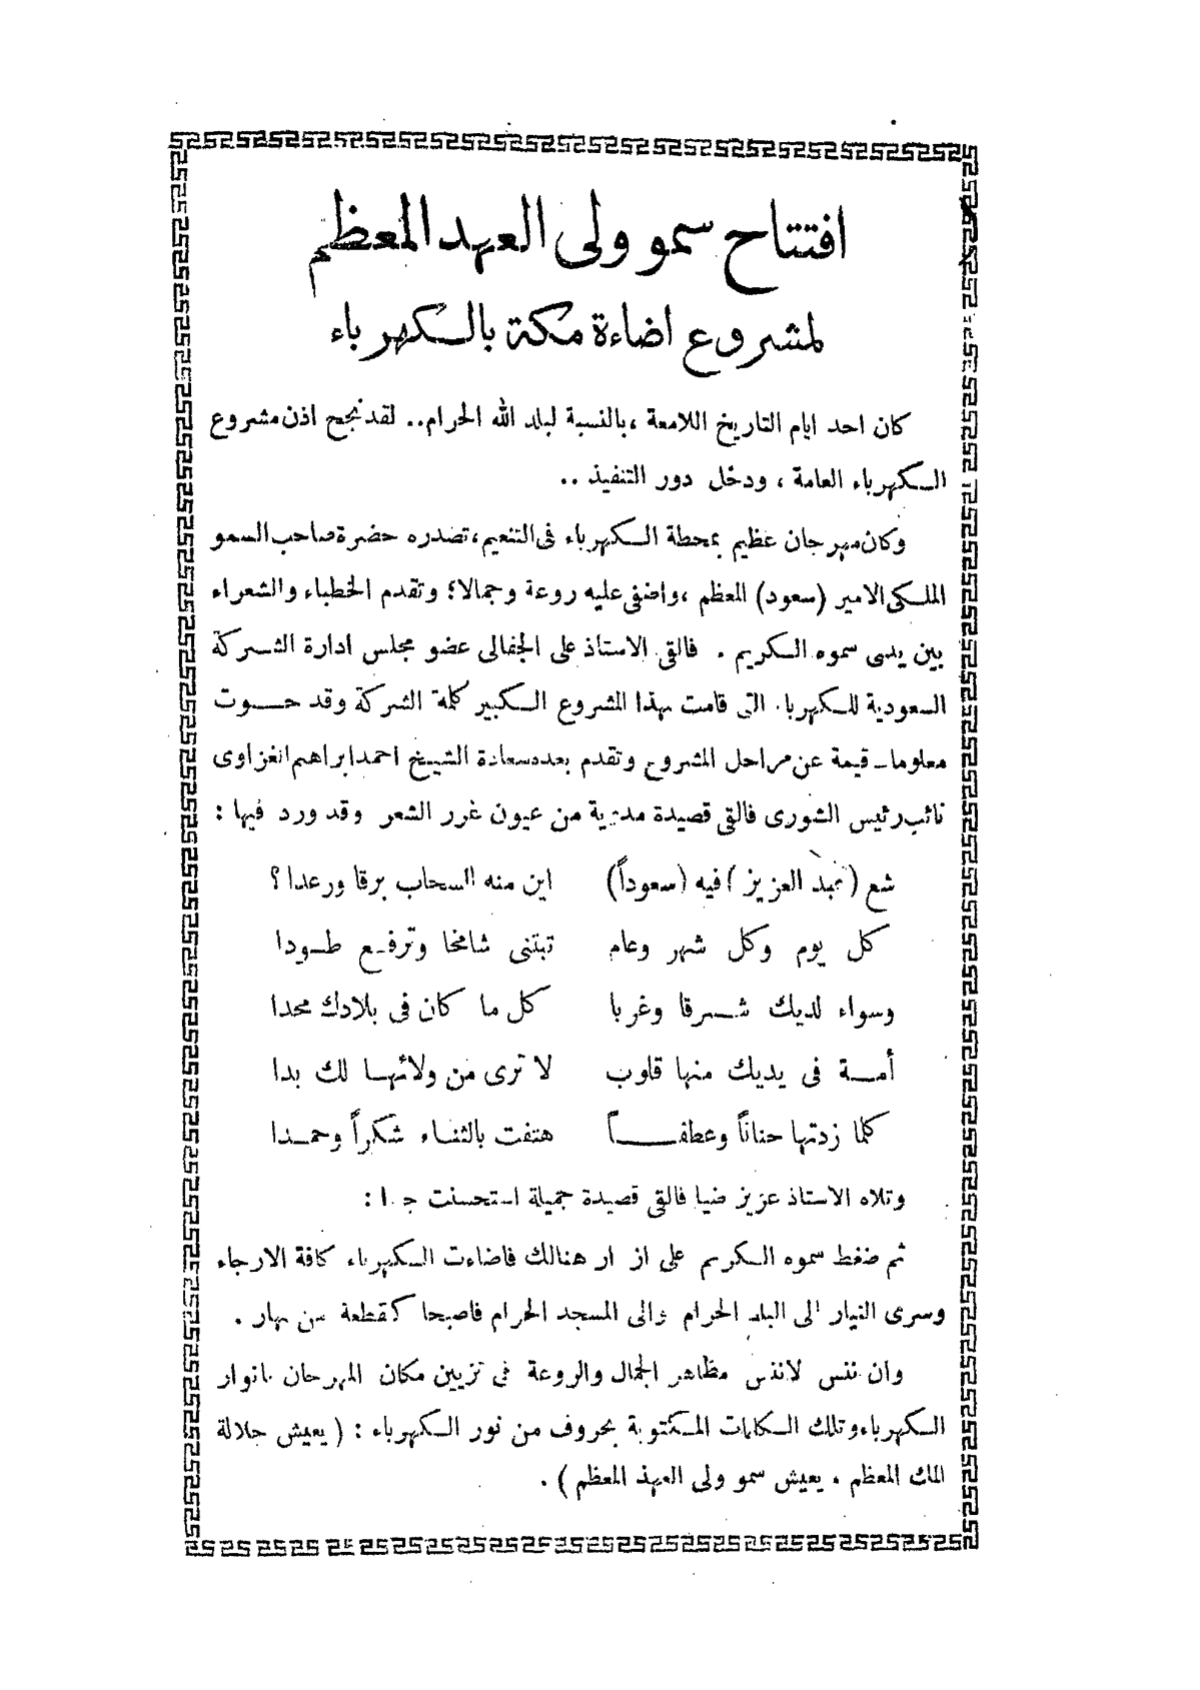 افتتاح سمو ولى العهد المعظم
لمشروع اضاءة مكة بالكهرباء
كان احد ايام التاريخ اللامعة ،بالنسبة لبلد الله الحرام.. لقد نجح اذن مشروع
الكهرباء العامة ، ودخل دور التنفيذ ..
وكان مهرجان عظيم بمحطة الكهرباء فى التنعيم، تصدره حضرة صاحب السمو
الملكى الامير (سعود) المعظم ،واضفى عليه روعة وجمالا؛ وتقدم الخطباء والشعراء
بين يدى سموه الكريم . فالقى الاستاذ على الجفالى عضو مجلس ادارة الشركة
السعودية للكهربا. التى قامت بهذا المشروع الكبير كلمة الشركة وقد حوت
معلومات قيمة عن مراحل المشروع وتقدم بعده سعادة الشيخ احمد ابراهيم الغزاوى
نائب رئيس الشورى فالقى قصيدة من عيون غرر الشعر وقد ورد فيها :
شع (بعبد العزيز) فيه (سعوداً) اين منه السحاب برقا ورعدا ؟
كل يوم وكل شهر وعام تبتنى شامخا وترفع طودا
وسواء لديك شرقا وغربا كل ما كان فى بلادك مجدا
أمة فى يديك منها قلوب لا ترى من ولائها لك بدا
كلما زدتها حناناً وعطفاً هتفت بالثناء شكراً وحمدا
وتلاه الاستاذ عزيز ضيا فالقى قصيدة جميلة استحسنت جدا :
ثم ضغط سموه الكريم على از ار هنالك فاضاءت الكهرباء كافة الارجاء
وسرى التيار الى البلد الحرام والى المسجد الحرام فاصبحا كقطعة من نهار .
وان ننس لا ننس مظاهر الجمال والروعة فى تزيين مكان المهرجان بانوار
الكهرباء وتلك الكلمات المكتوبة بحروف من نور الكهرباء : (يعيش جلالة
الملك المعظم . يعيش سمو ولى العهد المعظم ) .